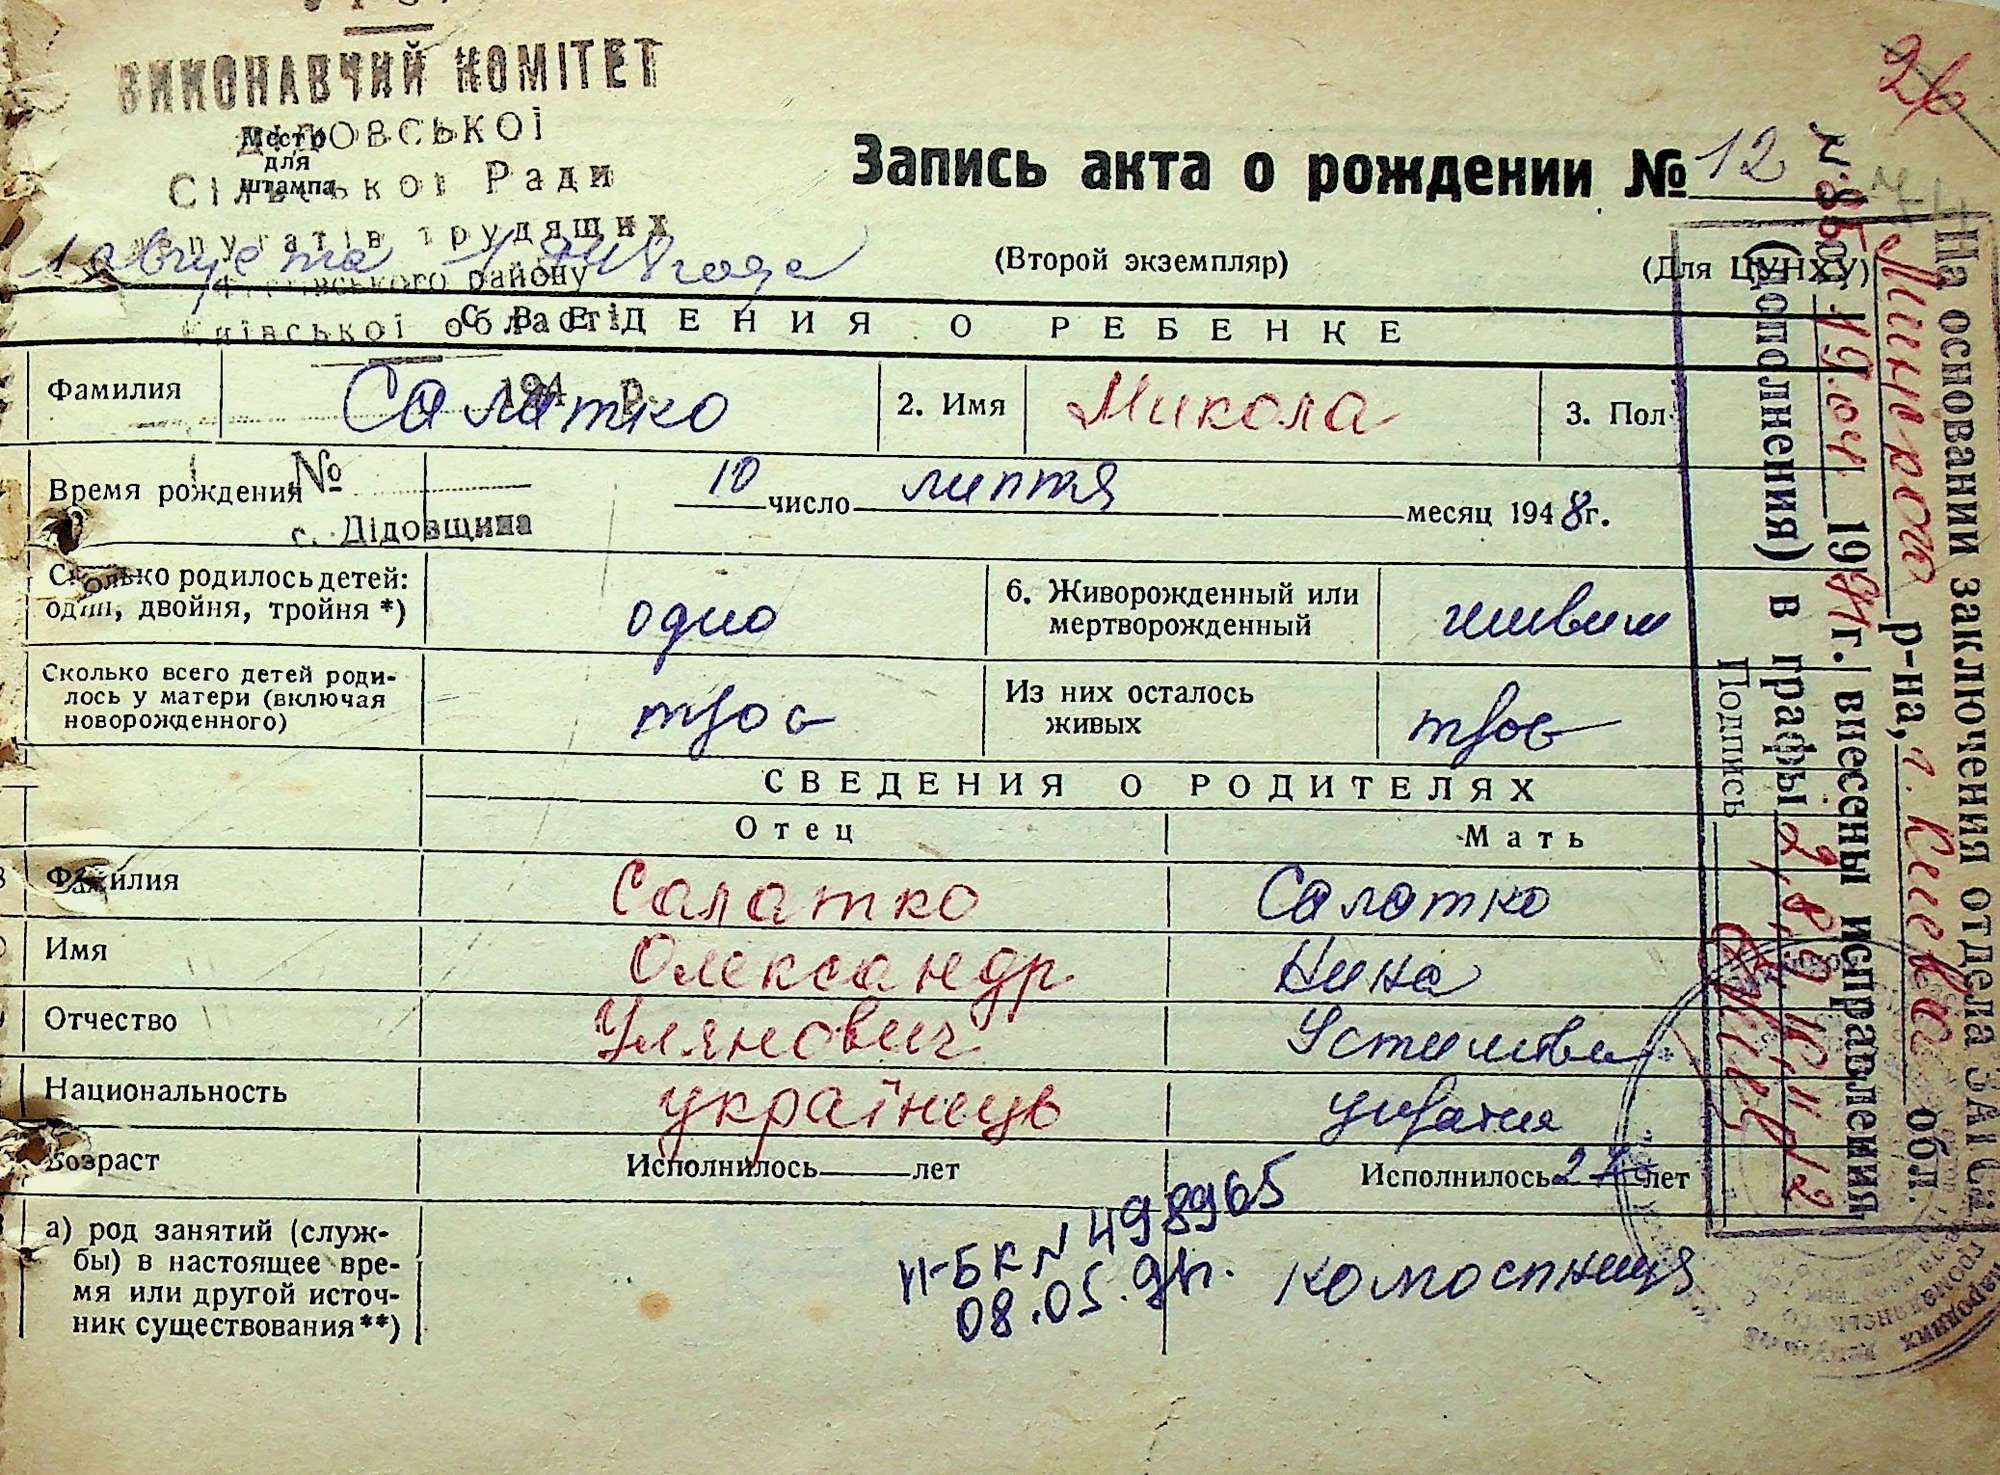 ВИКОНАВЧИЙ КОМІТЕТ
ДІДОВСЬКОЇ
Место
для
штампа
Сільської Ради
депутатів трудящих
району
Київської області
194 р.
№
с. Дідовщина
1 августа 1948 года
Запись акта о рождении № 12
(Второй экземпляр)
(Для ЦУНХУ)
26
СВЕДЕНИЯ О РЕБЕНКЕ
Фамилия Салатко 2. Имя Микола 3. Пол
Время рождения 10 число липтя месяц 1948 г.
Сколько родилось детей: один, двойня, тройня *) одно
6. Живорожденный или мертворожденный живим
Сколько всего детей родилось у матери (включая новорожденного) троє
Из них осталось живых троє
СВЕДЕНИЯ О РОДИТЕЛЯХ
Отец Мать
Фамилия Салатко Салатко
Имя Олександр Нина
Отчество Улянович
Национальность українець
Возраст Исполнилось лет Исполнилось лет
а) род занятий (службы) в настоящее время или другой источник существования **)
II-БК N 498965
08.05.91г.
На основании заключения отдела ЗАГСа
р-на, г. Киева обл.
N 85 от 19.04 1991 г. внесены исправления
(дополнения) в графы 2, 8, 9, 10, 11, 12
Подпись